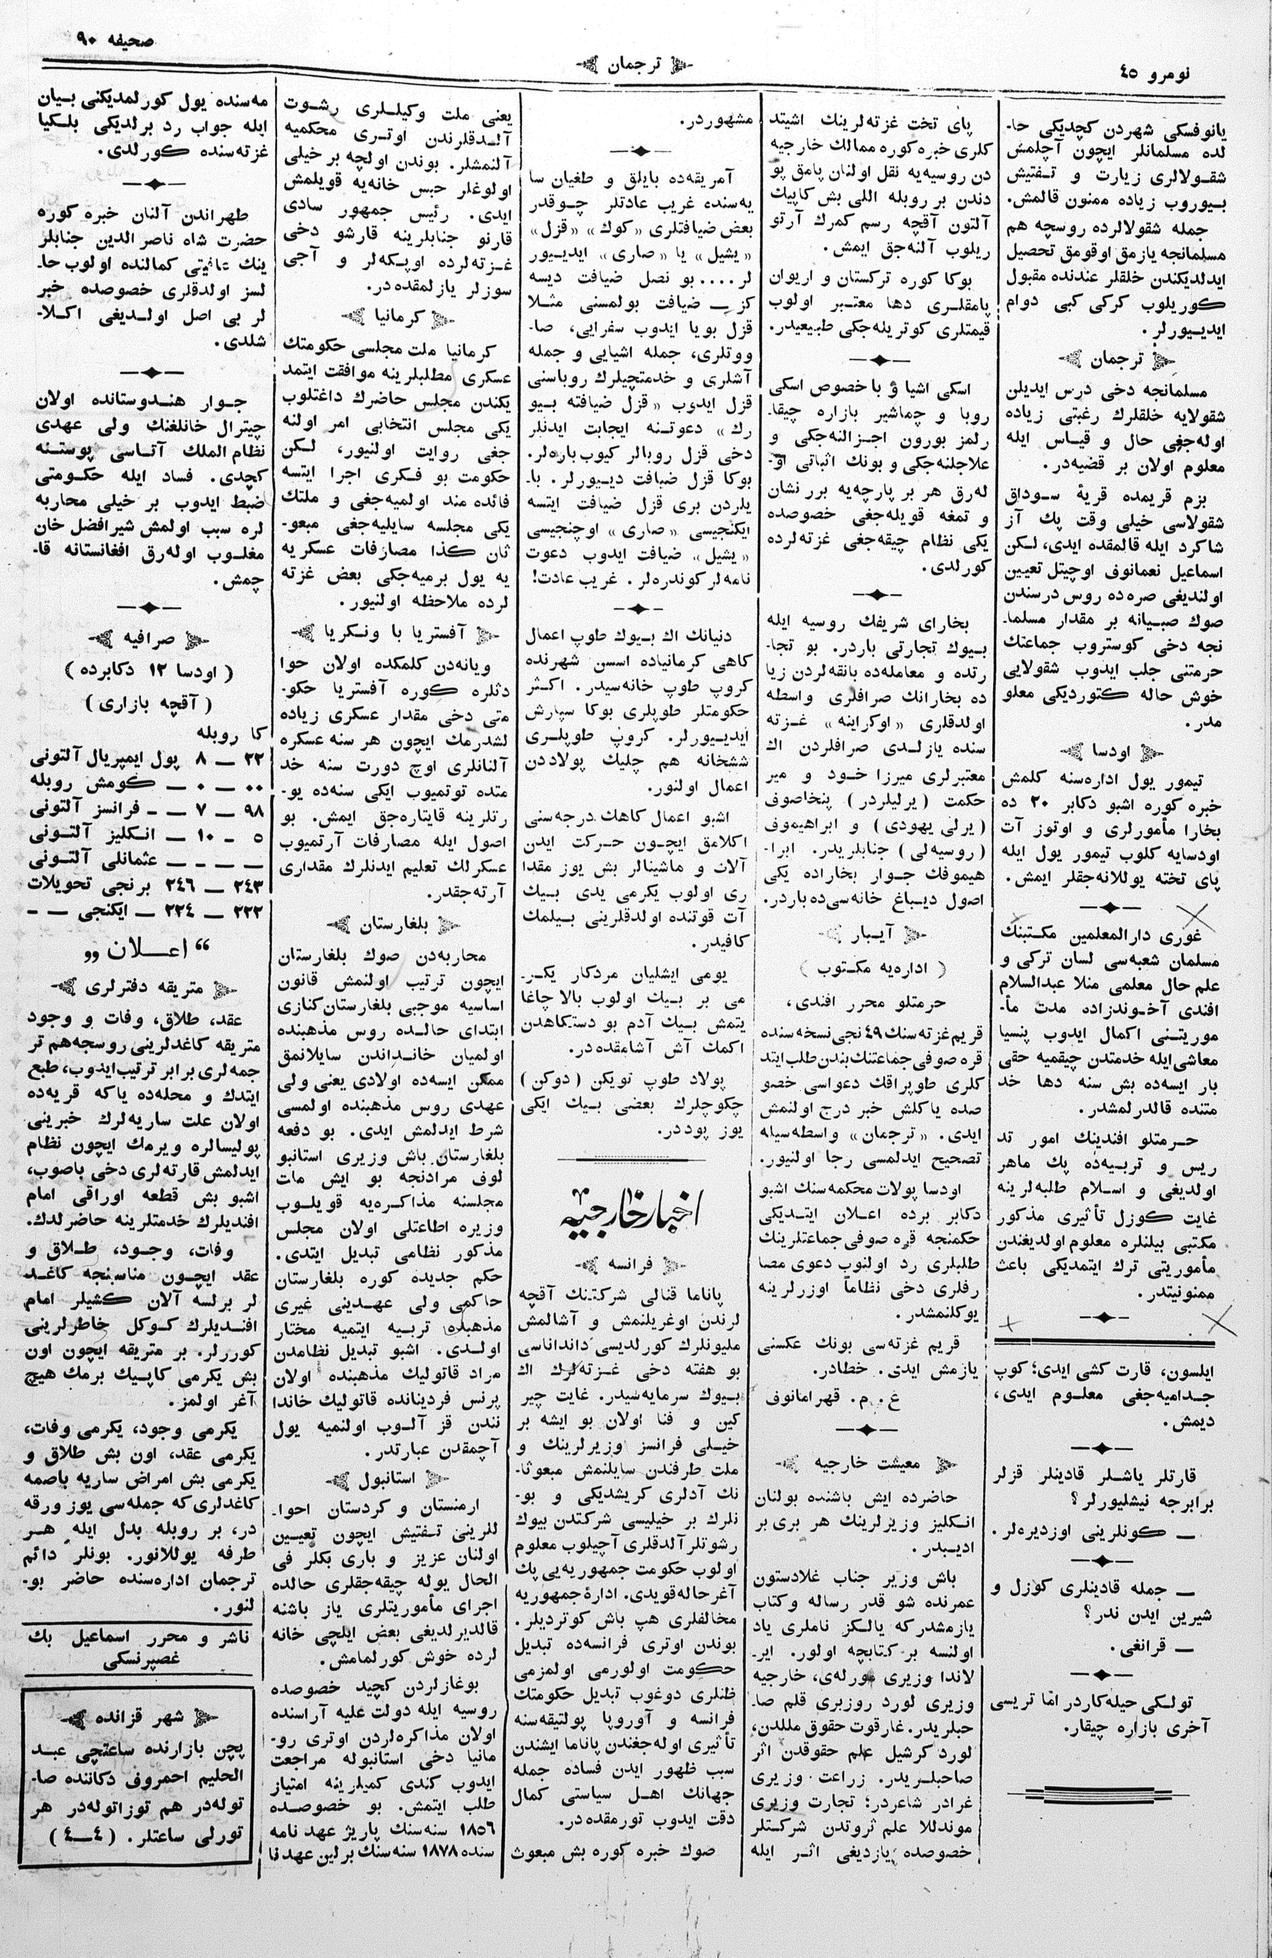 نومرو ٤٥
ترجمان
صحيفه ٩٠
يانوفسكى شهردن كچديكى حا-
لده مسلمانلر ايچون آچلمش
شقولالرى زيارت و تفتيش
بيوروب زياده ممنون قالمش.
جمله شقولالرده روسچه هم
مسلمانجه يازمق اوقومق تحصيل
ايدلديكندن خلقلر عندنده مقبول
كوريلوب كركى كبى دوام
ايديورلر.
ترجمان
مسلمانجه دخى درس ايديلن
شقولايه خلقلرك رغبتى زياده
اوله‌جغى حال و قياس ايله
معلوم اولان بر قضيه‌در.
بزم قريمده قريهٔ سوداق
شقولاسى خيلى وقت پك آز
شاكرد ايله قالمقده ايدى، لكن
اسماعيل نعمانوف اوچيتل تعيين
اولنديغى صره‌ده روس درسندن
صوك صبيانه بر مقدار مسلما-
نجه دخى كوستروب جماعتك
حرمتنى جلب ايدوب شقولايى
خوش حاله كتورديكى معلو
مدر.
اودسا
تيمور يول اداره‌سنه كلمش
خبره كوره اشبو دكابر ٢٠ ده
بخارا مأمورلرى و اوتوز آت
اودسايه كلوب تيمور يول ايله
پاى تخته يوللانه‌جقلر ايمش.
غورى دارالمعلمين مكتبنك
مسلمان شعبه‌سى لسان تركى و
علم حال معلمى منلا عبدالسلام
افندى آخوندزاده مدت مأ-
موريتنى اكمال ايدوب پنسيا
معاشى ايله خدمتدن چيقميه حقى
بار ايسه‌ده بش سنه دها خد
متنده قالدرلمشدر.
حرمتلو افندينك امور تد
ريس و تربيه‌ده پك ماهر
اولديغى و اسلام طلبه‌لرينه
غايت كوزل تأثيرى مذكور
مكتبى بيلنلره معلوم اولديغندن
مأموريتى ترك ايتمديكى باعث
ممنونيتدر.
ايلسون، قارت كشى ايدى؛ كوپ
جداميه‌جغى معلوم ايدى،
ديمش.
قارتلر ياشلر قادينلر قزلر
برابرجه نيشليورلر؟
— كونلرينى اوزديره‌لر.
— جمله قادينلرى كوزل و
شيرين ايدن ندر؟
— قرانغى.
تولكى حيله‌كاردر اما تريسى
آخرى بازاره چيقار.
پاى تخت غزته‌لرينك اشيتد
كلرى خبره كوره ممالك خارجيه
دن روسيه‌يه نقل اولنان پامق پو
دندن بر روبله اللى بش كاپيك
آلتون آقچه رسم كمرك آرتو
ريلوب آلنه‌جق ايمش.
بوكا كوره تركستان و اريوان
پامقلرى دها معتبر اولوب
قيمتلرى كوتريله‌جكى طبيعيدر.
اسكى اشيا و باخصوص اسكى
روبا و چماشير بازاره چيقا-
رلمز بورون اجزالنه‌جكى و
علاجلنه‌جكى و بونك اثباتى او-
له‌رق هر بر پارچه‌يه برر نشان
و تمغه قويله‌جغى خصوصده
يكى نظام چيقه‌جغى غزته‌لرده
كورلدى.
بخاراى شريفك روسيه ايله
بيوك تجارتى باردر. بو تجا-
رتده و معامله‌ده بانقه‌لردن زيا
ده بخارانك صرافلرى واسطه
اولدقلرى «اوكراينه» غزته
سنده يازلدى صرافلردن اك
معتبرلرى ميرزا خود و مير
حكمت (يرليلردر) پنخاصوف
(يرلى يهودى) و ابراهيموف
(روسيه‌لى) جنابلريدر. ابرا-
هيموفك جوار بخاراده يكى
اصول ديباغ خانه‌سى ده باردر.
آيبار
(اداره‌يه مكتوب)
حرمتلو محرر افندى،
قريم غزته سنك ٤٩ نجى نسخه سنده
قره صوفى جماعتنك بندن طلب ايتد
كلرى طوپراقك دعواسى خصو
صده ياكلش خبر درج اولنمش
ايدى. «ترجمان» واسطه‌سيله
تصحيح ايدلمسى رجا اولنيور.
اودسا پولات محكمه سنك اشبو
دكابر برده اعلان ايتديكى
حكمنجه قره صوفى جماعتلرينك
طلبلرى رد اولنوب دعوى مصا
رفلرى دخى نظاماً اوزرلرينه
يوكلنمشدر.
قريم غزته‌سى بونك عكسنى
يازمش ايدى. خطادر.
ع. م. قهرامانوف
معيشت خارجيه
حاضرده ايش باشنده بولنان
انكليز وزيرلرينك هر برى بر
اديبدر.
باش وزير جناب غلادستون
عمرنده شو قدر رساله و كتاب
يازمشدركه يالكز ناملرى ياد
اولنسه بر كتابچه اولور. اير-
لاندا وزيرى مورله‌ى، خارجيه
وزيرى لورد روزبرى قلم صا-
حبلريدر. غارقوت حقوق مللدن،
لورد كرشيل علم حقوقدن اثر
صاحبلريدر. زراعت وزيرى
غرادر شاعردر؛ تجارت وزيرى
موندللا علم ثروتدن شركتلر
خصوصده يازديغى اثر ايله
مشهوردر.
آمريقه‌ده بايلق و طغيان سا
يه‌سنده غريب عادتلر چوقدر
بعض ضيافتلرى «كوك» «قزل»
«يشيل» يا «صارى» ايديور
لر.... بو نصل ضيافت ديسه
كز ضيافت بولمسنى مثلا
قزل بويا ايدوب سفرايى، صا-
ووتلرى، جمله اشيايى و جمله
آشلرى و خدمتچيلرك روباسنى
قزل ايدوب «قزل ضيافته بيو
رك» دعوتنه ايجابت ايدنلر
دخى قزل روبالر كيوب باره‌لر.
بوكا قزل ضيافت ديورلر. با-
يلردن برى قزل ضيافت ايتسه
ايكنجيسى «صارى» اوچنجيسى
«يشيل» ضيافت ايدوب دعوت
نامه‌لر كوندره‌لر. غريب عادت!
دنيانك اك بيوك طوپ اعمال
كاهى كرمانياده اسسن شهرنده
كروپ طوپ خانه‌سيدر. اكثر
حكومتلر طوپلرى بوكا سپارش
ايديورلر. كروپ طوپلرى
ششخانه هم چليك پولاددن
اعمال اولنور.
اشبو اعمال كاهك درجه‌سنى
اكلامق ايچون حركت ايدن
آلات و ماشينالر بش يوز مقدا
رى اولوب يكرمى يدى بيك
آت قوتنده اولدقلرينى بيلمك
كافيدر.
يومى ايشليان مردكار يكر-
مى بر بيك اولوب بالا چاغا
يتمش بيك آدم بو دستكاهدن
اكمك آش آشامقده‌در.
پولاد طوپ توبكن (دوكن)
چكوچلرك بعضى بيك ايكى
يوز پوددر.
اخبار خارجيه
فرانسه
پاناما قنالى شركتنك آقچه
لرندن اوغريلنمش و آشالمش
مليونلرك كورلديسى دانداناسى
بو هفته دخى غزته‌لرك اك
بيوك سرمايه‌سيدر. غايت چير
كين و فنا اولان بو ايشه بر
خيلى فرانسز وزيرلرينك و
ملت طرفندن سايلنمش مبعوثا-
نك آدلرى كريشديكى و بو-
نلرك بر خيليسى شركتدن بيوك
رشوتلر آلدقلرى آچيلوب معلوم
اولوب حكومت جمهوريه‌يى پك
آغر حاله قويدى. ادارهٔ جمهوريه
مخالفلرى هپ باش كوترديلر.
بوندن اوترى فرانسه‌ده تبديل
حكومت اولورمى اولمزمى
ظنلرى دوغوب تبديل حكومتك
فرانسه و آوروپا پولتيقه‌سنه
تأثيرى اوله‌جغندن پاناما ايشندن
سبب ظهور ايدن فساده جمله
جهانك اهل سياستى كمال
دقت ايدوب تورمقده‌در.
صوك خبره كوره بش مبعوث
يعنى ملت وكيللرى رشوت
آلدقلرندن اوترى محكميه
آلنمشلر. بوندن اولچه بر خيلى
اولوغلر حبس خانه‌يه قويلمش
ايدى. رئيس جمهور سادى
قارنو جنابلرينه قارشو دخى
غزته‌لرده اوپكه‌لر و آجى
سوزلر يازلمقده‌در.
كرمانيا
كرمانيا ملت مجلسى حكومتك
عسكرى مطلبلرينه موافقت ايتمد
يكندن مجلس حاضرك داغتلوب
يكى مجلس انتخابى امر اولنه
جغى روايت اولنيور، لكن
حكومت بو فكرى اجرا ايتسه
فائده مند اولميه‌جغى و ملتك
يكى مجلسه سايليه‌جغى مبعو-
ثان كذا مصارفات عسكريه
يه يول برميه‌جكى بعض غزته
لرده ملاحظه اولنيور.
آفستريا با ونكريا
ويانه‌دن كلمكده اولان حوا
دثلره كوره آفستريا حكو-
متى دخى مقدار عسكرى زياده
لشدرمك ايچون هر سنه عسكره
آلنانلرى اوچ دورت سنه خد
متده توتميوب ايكى سنه‌ده يو-
رتلرينه قايتاره‌جق ايمش. بو
اصول ايله مصارفات آرتميوب
عسكرلك تعليم ايدنلرك مقدارى
آرته‌جقدر.
بلغارستان
محاربه‌دن صوك بلغارستان
ايچون ترتيب اولنمش قانون
اساسيه موجبى بلغارستان كنازى
ابتداى حالده روس مذهبنده
اولميان خانداندن سايلانمق
ممكن ايسه‌ده اولادى يعنى ولى
عهدى روس مذهبنده اولمسى
شرط ايدلمش ايدى. بو دفعه
بلغارستان باش وزيرى استانبو
لوف مرادنجه بو ايش مات
مجلسنه مذاكره‌يه قويلوب
وزيره اطاعتلى اولان مجلس
مذكور نظامى تبديل ايتدى.
حكم جديده كوره بلغارستان
حاكمى ولى عهدينى غيرى
مذهبده تربيه ايتميه مختار
اولدى. اشبو تبديل نظامدن
مراد قاتوليك مذهبنده اولان
پرنس فرديناند‌ه قاتوليك خاندا
نندن قز آلوب اولنميه يول
آچمقدن عبارتدر.
استانبول
ارمنستان و كردستان احوا-
للرينى تفتيش ايچون تعيين
اولنان عزيز و بارى بكلر فى
الحال يوله چيقه‌جقلرى حالده
اجراى مأموريتلرى ياز باشنه
قالديرلديغى بعض ايلچى خانه
لرده خوش كورلمامش.
بوغازلردن كچيد خصوصده
روسيه ايله دولت عليه آراسنده
اولان مذاكره‌لردن اوترى رو-
مانيا دخى استانبوله مراجعت
ايدوب كندى كميلرينه امتياز
طلب ايتمش. بو خصوصده
١٨٥٦ سنه سنك پاريژ عهد نامه
سنده ١٨٧٨ سنه سنك برلين عهدنا
مه‌سنده يول كورلمديكنى بيان
ايله جواب رد برلديكى بلكيا
غزته سنده كورلدى.
طهراندن آلنان خبره كوره
حضرت شاه ناصر الدين جنابلر
ينك عافيتى كمالنده اولوب حا-
لسز اولدقلرى خصوصده خبر
لر بى اصل اولديغى اكلا-
شلدى.
جوار هندوستانده اولان
چيترال خانلغنك ولى عهدى
نظام الملك آتاسى پوستنه
كچدى. فساد ايله حكومتى
ضبط ايدوب بر خيلى محاربه
لره سبب اولمش شير افضل خان
مغلوب اوله‌رق افغانستانه قا-
چمش.
صرافيه
(اودسا ١٢ دكابرده)
(آقچه بازارى)
كا روبله
٢٢ — ٨ پول ايمپريال آلتونى
٠٠ — ٠ — كومش روبله
٩٨ — ٧ — فرانسز آلتونى
٥ - ١٠ — انكليز آلتونى
— — - — عثمانلى آلتونى
٢٤٣ — ٢٤٦ برنجى تحويلات
٢٢٢ — ٢٢٤ — ايكنجى — -
“ اعلان „
متريقه دفترلرى
عقد، طلاق، وفات و وجود
متريقه كاغدلرينى روسجه هم تر
جمه‌لرى برابر ترتيب ايدوب، طبع
ايتدك و محله‌ده ياكه قريه‌ده
اولان علت ساريه‌لرك خبرينى
پوليسالره ويرمك ايچون نظام
ايدلمش قارته‌لرى دخى باصوب،
اشبو بش قطعه اوراقى امام
افنديلرك خدمتلرينه حاضرلدك.
وفات، وجود، طلاق و
عقد ايچون مناسبنجه كاغد
لر برلسه آلان كشيلر امام
افنديلرك كوكل خاطرلرينى
كوررلر. بر متريقه ايچون اون
بش يكرمى كاپيك برمك هيچ
آغر اولمز.
يكرمى وجود، يكرمى وفات،
يكرمى عقد، اون بش طلاق و
يكرمى بش امراض ساريه باصمه
كاغدلرى كه جمله‌سى يوز ورقه
در، بر روبله بدل ايله هر
طرفه يوللانور. بونلر دائم
ترجمان اداره‌سنده حاضر بو-
لنور.
ناشر و محرر اسماعيل بك
غصپرنسكى
شهر قزانده
پچن بازارنده ساعتچى عبد
الحليم احمروف دكاننده صا-
توله‌در هم توزاتوله‌در هر
تورلى ساعتلر. (٤—٤)